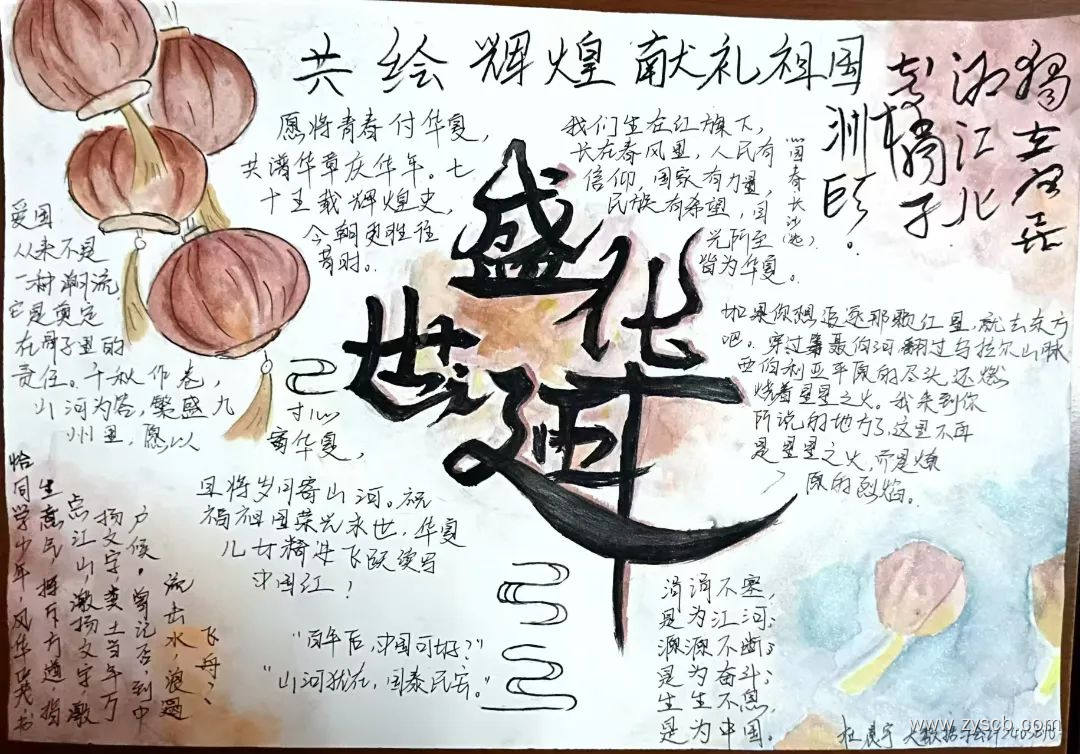 共绘辉煌献礼祖国
独立寒
湘江北
橘子
洲头。
《沁园春长沙》
愿将青春付华夏，
共谱华章庆华年。七
十五载辉煌史，
今朝更胜往
昔时。
我们生在红旗下，
长在春风里，人民有
信仰，国家有力量，
民族有希望，目
光所至
皆为华夏。
盛世华诞
爱国
从来不是
一种潮流
它是奠定
在骨子里的
责任。千秋作卷，
山河为答，繁盛九
州里，愿以
寸心
寄华夏，
且将岁月寄山河。祝
福祖国荣光永世，华夏
儿女精进飞跃续写
中国红！
如果你想追逐那颗红星，就去东方
吧。穿过聂伯河翻过乌拉尔山脉
西伯利亚平原的尽头还燃
烧着星星之火。我来到你
所说的地方了，这里不再
是星星之火，而是燎
原的烈焰。
恰同学少年，风华
生意气，挥斥方遒，指
点江山，激扬文字，激
扬文字，粪土当年万
户侯。曾记否，到中
流击水，浪遏
飞舟？
"百年后，中国可好？"
"山河犹在，国泰民安。"
涓涓不塞，
是为江河；
源源不断；
是为奋斗；
生生不息，
是为中国。
www.zyscb.com